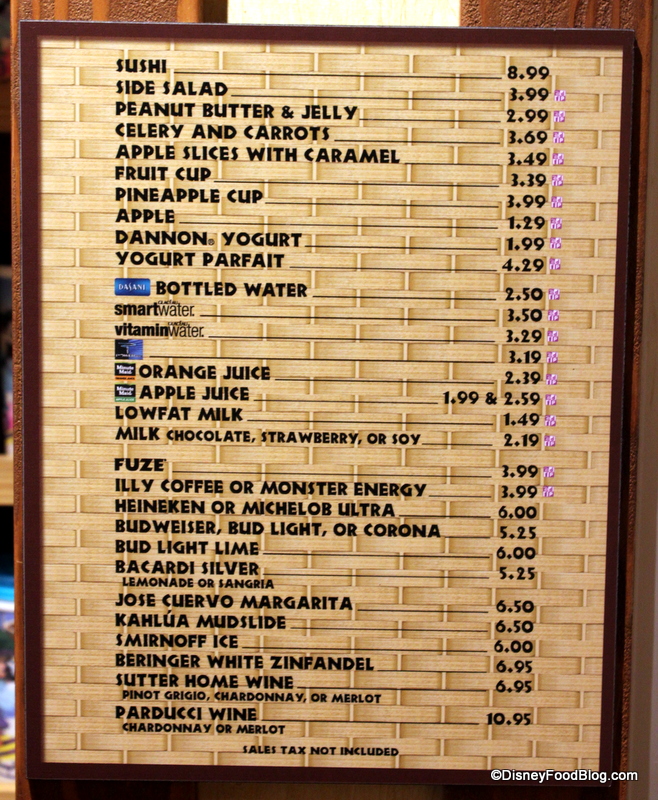 SUSHI 8.99
SIDE SALAD 3.99
PEANUT BUTTER & JELLY 2.99
CELERY AND CARROTS 3.69
APPLE SLICES WITH CARAMEL 3.49
FRUIT CUP 3.39
PINEAPPLE CUP 3.99
APPLE 1.29
DANNON® YOGURT 1.99
YOGURT PARFAIT 4.29
DASANI BOTTLED WATER 2.50
smartwater 3.50
vitaminwater 3.29
3.19
Minute Maid ORANGE JUICE 2.39
Minute Maid APPLE JUICE 1.99 & 2.59
LOWFAT MILK 1.49
MILK CHOCOLATE, STRAWBERRY, OR SOY 2.19
FUZE 3.99
ILLY COFFEE OR MONSTER ENERGY 3.99
HEINEKEN OR MICHELOB ULTRA 6.00
BUDWEISER, BUD LIGHT, OR CORONA 5.25
BUD LIGHT LIME 6.00
BACARDI SILVER 5.25
LEMONADE OR SANGRIA
JOSE CUERVO MARGARITA 6.50
KAHLÚA MUDSLIDE 6.50
SMIRNOFF ICE 6.00
BERINGER WHITE ZINFANDEL 6.95
SUTTER HOME WINE 6.95
PINOT GRIGIO, CHARDONNAY, OR MERLOT
PARDUCCI WINE 10.95
CHARDONNAY OR MERLOT
SALES TAX NOT INCLUDED
©DisneyFoodBlog.com